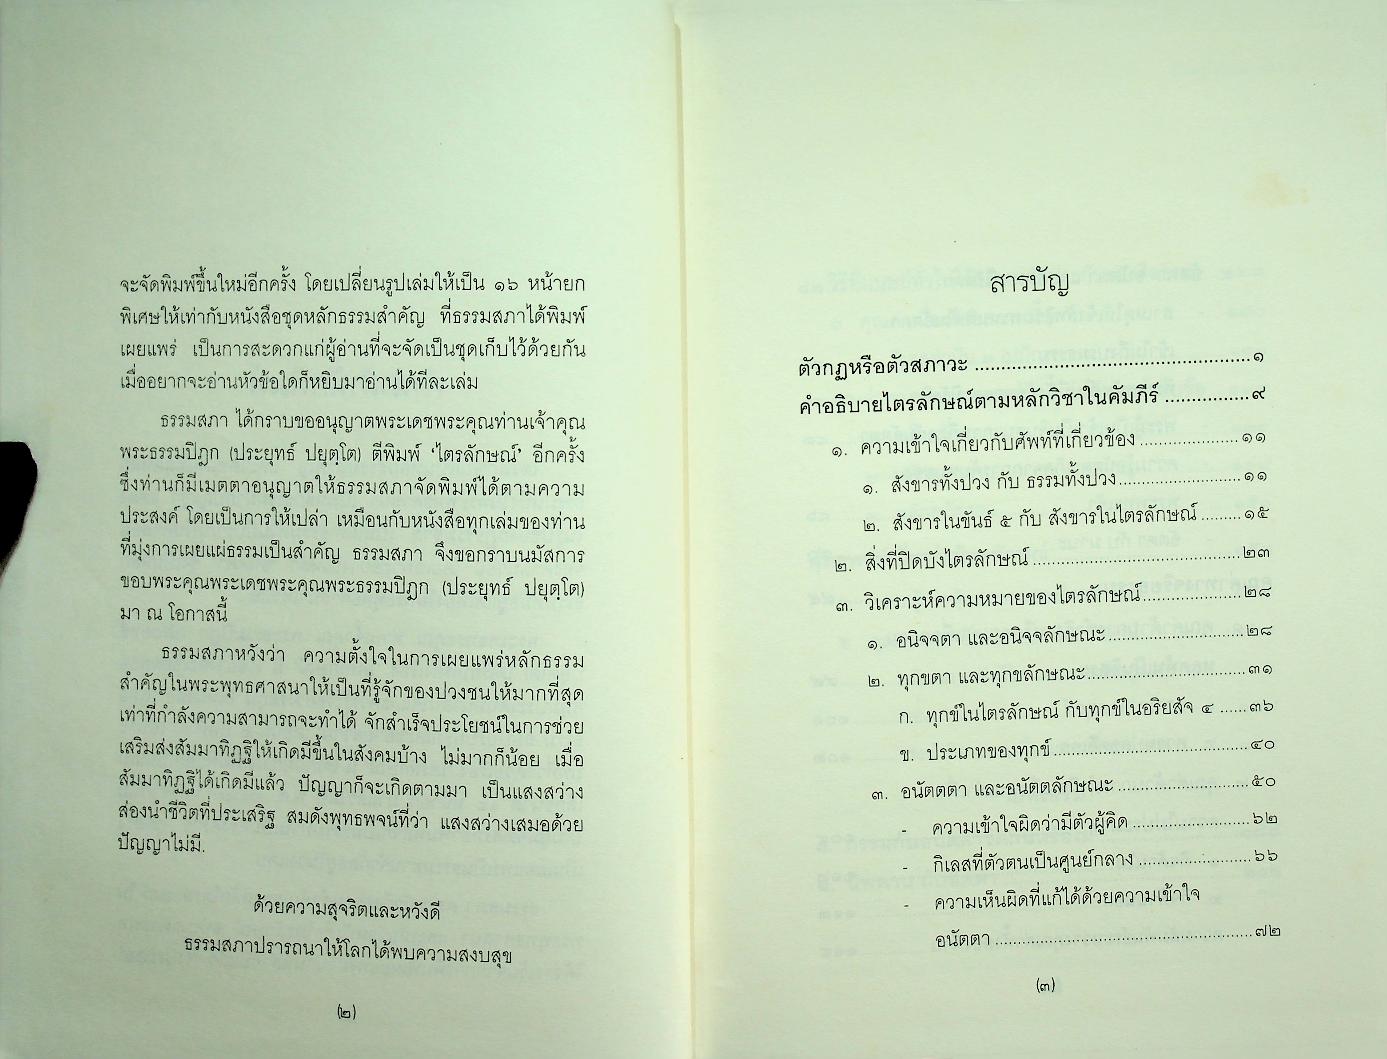 จะจัดพิมพ์ขึ้นใหม่อีกครั้ง โดยเปลี่ยนรูปเล่มให้เป็น ๑๖ หน้ายก
พิเศษให้เท่ากับหนังสือชุดหลักธรรมสำคัญ ที่ธรรมสภาได้พิมพ์
เผยแพร่ เป็นการสะดวกแก่ผู้อ่านที่จะจัดเป็นชุดเก็บไว้ด้วยกัน
เมื่ออยากจะอ่านหัวข้อใดก็หยิบมาอ่านได้ทีละเล่ม
ธรรมสภา ได้กราบขออนุญาตพระเดชพระคุณท่านเจ้าคุณ
พระธรรมปิฎก (ประยุทธ์ ปยุตฺโต) ตีพิมพ์ ‘ไตรลักษณ์’ อีกครั้ง
ซึ่งท่านก็มีเมตตาอนุญาตให้ธรรมสภาจัดพิมพ์ได้ตามความ
ประสงค์ โดยเป็นการให้เปล่า เหมือนกับหนังสือทุกเล่มของท่าน
ที่มุ่งการเผยแผ่ธรรมเป็นสำคัญ ธรรมสภา จึงขอกราบนมัสการ
ขอบพระคุณพระเดชพระคุณพระธรรมปิฎก (ประยุทธ์ ปยุตฺโต)
มา ณ โอกาสนี้
ธรรมสภาหวังว่า ความตั้งใจในการเผยแพร่หลักธรรม
สำคัญในพระพุทธศาสนาให้เป็นที่รู้จักของปวงชนให้มากที่สุด
เท่าที่กำลังความสามารถจะทำได้ จักสำเร็จประโยชน์ในการช่วย
เสริมส่งสัมมาทิฏฐิให้เกิดมีขึ้นในสังคมบ้าง ไม่มากก็น้อย เมื่อ
สัมมาทิฏฐิได้เกิดมีแล้ว ปัญญาก็จะเกิดตามมา เป็นแสงสว่าง
ส่องนำชีวิตที่ประเสริฐ สมดังพุทธพจน์ที่ว่า แสงสว่างเสมอด้วย
ปัญญาไม่มี.
ด้วยความสุจริตและหวังดี
ธรรมสภาปรารถนาให้โลกได้พบความสงบสุข
(๒)
สารบัญ
ตัวกฏหรือตัวสภาวะ ................................................๑
คำอธิบายไตรลักษณ์ตามหลักวิชาในคัมภีร์ ...............๙
๑. ความเข้าใจเกี่ยวกับศัพท์ที่เกี่ยวข้อง ....................๑๑
๑. สังขารทั้งปวง กับ ธรรมทั้งปวง........................๑๑
๒. สังขารในขันธ์ ๕ กับ สังขารในไตรลักษณ์ ........๑๕
๒. สิ่งที่ปิดบังไตรลักษณ์ ........................................๒๓
๓. วิเคราะห์ความหมายของไตรลักษณ์....................๒๘
๑. อนิจจตา และอนิจจลักษณะ..........................๒๘
๒. ทุกขตา และทุกขลักษณะ..............................๓๑
ก. ทุกข์ในไตรลักษณ์ กับทุกข์ในอริยสัจ ๔ ......๓๖
ข. ประเภทของทุกข์.....................................๔๐
๓. อนัตตตา และอนัตตลักษณะ..........................๕๐
- ความเข้าใจผิดว่ามีตัวผู้คิด .......................๖๒
- กิเลสที่ตัวตนเป็นศูนย์กลาง ......................๖๖
- ความเห็นผิดที่แก้ได้ด้วยความเข้าใจ
อนัตตา ..................................................๗๒
(๓)